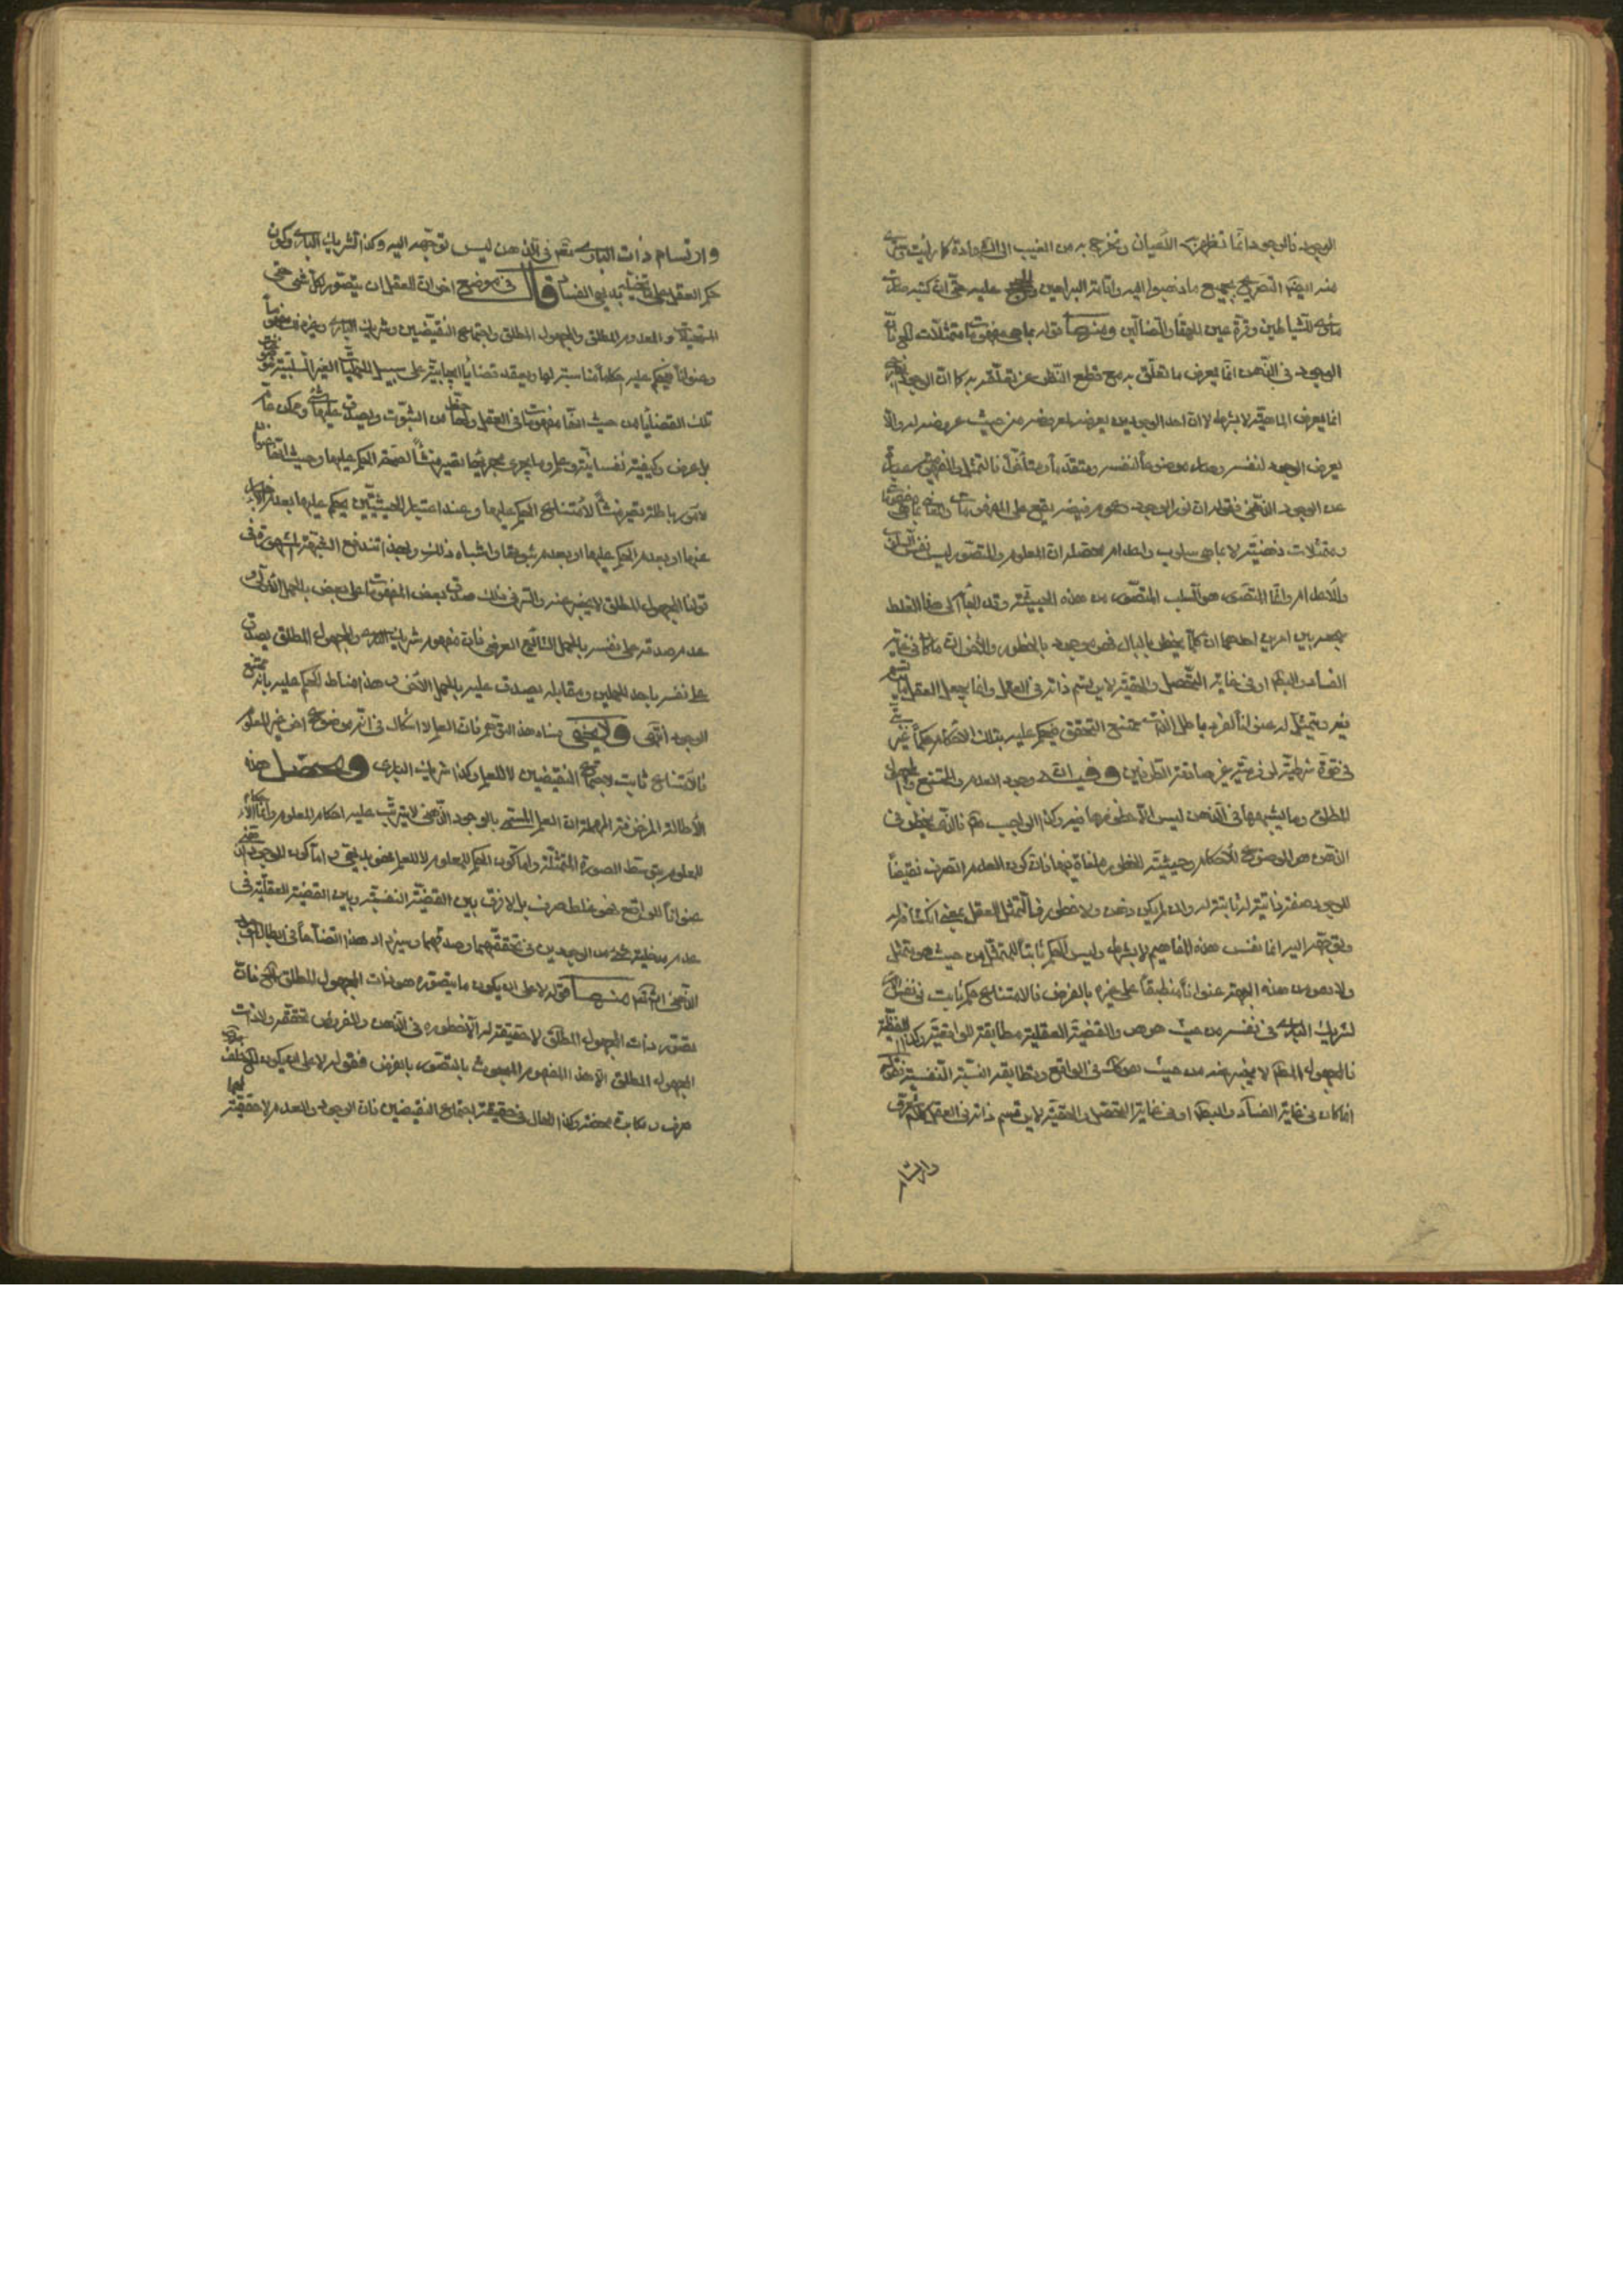 الوجود فالوجود انما تظهر به الاعيان وتخرج به من الغيب الى الشهادة كما رايت
منه ايضا التصريح بجميع ما ذهبوا اليه واقامة البراهين عليه حتى ان كتبه صارت
ماوى للشياطين وقرة عين للحمقاء والضالين ومنها قوله بما هي مفهومات متمثلات
الوجود في الذهن انما يعرض ما تعلق به مع قطع النظر عن تعلقه به كما ان الوجود
انما يعرض الماهية لا بشرط لا ان احد الوجودين يعرض المعروض من حيث عروضه له والا
يعرض الوجود لنفسه وصار موضوعا لنفسه ومتقدما ومتأخرا فالتمثل والمفهومية عبارة
عن الوجود الذهني فقوله ان نور الوجود وعموم فيضه يقع على المفهومات
ومتمثلات ذهنية لا بما هي سلوب واعدام محصله ان المعلوم والمتصور ليس نفس السلوب
والاعدام وانما المتصور هو السلب المتصور من هذه الحيثية وقد الجأ الى هذا الغلط
احدهما ان كلما يخطر بالبال فهو موجود بالخطور والاخر ان ما كان في غاية
الفساد والبطلان او في غاية التحصل والحقية لا يرتسم ذاته في العقل وانما يجعل العقل
ويتمثل له عنوانا لفرد باطل الذات ممتنع التحقق فيحكم عليه بتلك الاحكام حكما غير
في قوة شرطية لزومية غير صادقة الطرفين وفيه ان وجود العدم والممتنع والمجهول
المطلق وما يشبهها في الذهن ليس الا خطورها فيه وكذا الواجب
الذهن هو الموضوع للاحكام وحيثية الخطور ملغاة فيها فان كون العدم الصرف نقيضا
للوجود صفة ذاتية له ثابتة له وان لم يكن ذهن ولا خطور فالمتمثل للعقل بمعنى انكشافه له
وتوجهه اليه انما نفس هذه المفاهيم لا بشرط وليس الحكم ثابتا للمتمثل من حيث هو متمثل
ولا هو من هذه الجهة عنوانا منطبقا على غيره بالفرض فالامتناع حكم ثابت في نفس الامر
لشريك الباري في نفسه من حيث هو هو والقضية العقلية مطابقة للواقعية وكذا اللفظية
فالمجهول المطلق لا يخبر عنه من حيث هو كذلك في الواقع وتطابقه النسبة النفسية
اذا كان في غاية الفساد والبطلان او في غاية التحصل والحقية لا يرتسم ذاته في العقل
وارتسام
وارتسام ذات الباري تعالى في الذهن ليس توجهه اليه وكذا شريك الباري وكون
حكم العقل على بديهي الفساد قال في موضع اخر ان للعقل ان يتصور لكل شيء حتى
المستحيلات والمعدوم المطلق والمجهول المطلق واجتماع النقيضين وشريك الباري وغيره مفهوما
وعنوانا فيحكم عليه احكاما مناسبة لها ويعقد قضايا ايجابية على سبيل الحمليات الغير البتية
تلك القضايا من حيث انها مفهومات في العقل ولها حظ من الثبوت ويصدق عليها شيء وممكن عام
بل عرض وكيفية نفسانية وعلم وما يجري مجراها تصير منشأ لصحة الحكم عليها وحيث انها
لامور باطلة تصير منشأ لامتناع الحكم عليها وعند اعتبار الحيثيتين يحكم عليها بعدم الاخبار
عنها او بعدم الحكم عليها او بعدم ثبوتها واشباه ذلك وبهذا تندفع الشبهة المشهورة في
قولنا المجهول المطلق لا يخبر عنه والسر في ذلك صدق بعض المفهومات على بعض بالحمل الاولي
عدم صدقه على نفسه بالحمل الشائع العرضي فان مفهوم شريك الباري والمجهول المطلق يصدق
على نفسه باحد الحملين ومقابله يصدق عليه بالحمل الاخر وهذا مناط الحكم عليه بانه ممتنع
الوجود انتهى ولا يخفى فساد هذا التوهم فان العلم لا اشكال في انه موضوع اخر غير المعلوم
فالامتناع ثابت لاجتماع النقيضين لا للعلم وكذا شريك الباري ومحصل هذه
الاطالة ان العلم المسمى بالوجود الذهني لا يترتب عليه احكام المعلوم وانما الاحكام
للمعلوم بتوسط الصورة المتمثلة واما كون الحكم للمعلوم لا للعلم فهو بديهي واما كون الوجود الذهني
عنوانا للواقع فهو غلط صرف بل لا فرق بين القضية النفسية وبين القضية العقلية في
عدم مدخلية شيء من الوجودين في تحققهما وصدقهما وسيزداد هذا اتضاحا في ابطال الوجود
الذهني ان شاء الله تعالى منها قوله لا على ان يكون ما يتصوره هو ذات المجهول المطلق فان
تصور ذات المجهول المطلق لا حقيقة له الا خطوره في الذهن والمفروض تحققه ولا ذات
المجهول المطلق الا هذا المفهوم المبحوث بالتصور بالفرض فقوله لا على ان يكون الخ غلط
صرف ومكابرة محضة وكذا الحال في حقيقة اجتماع النقيضين فان الوجود والعدم لا حقيقة